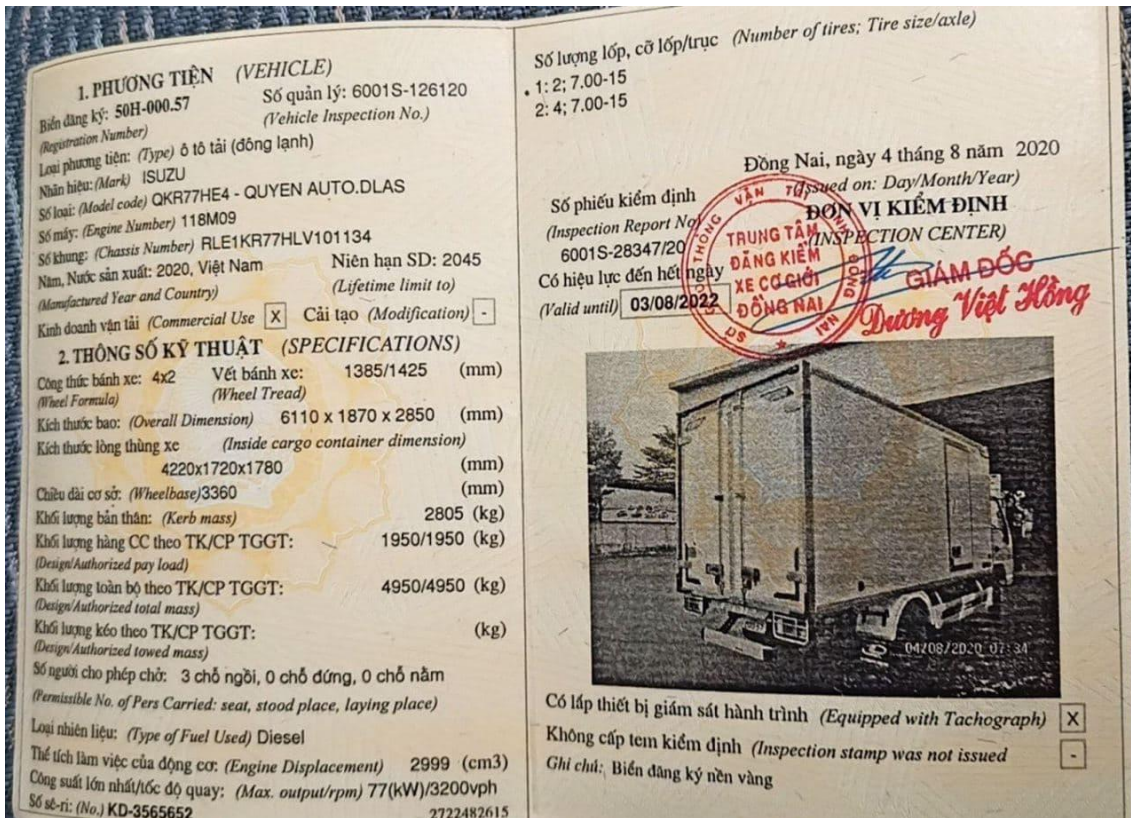 1. PHƯƠNG TIỆN (VEHICLE)
Biển đăng ký: 50H-000.57 Số quản lý: 6001S-126120
(Registration Number) (Vehicle Inspection No.)
Loại phương tiện: (Type) ô tô tải (đông lạnh)
Nhãn hiệu: (Mark) ISUZU
Số loại: (Model code) QKR77HE4 - QUYEN AUTO.DLAS
Số máy: (Engine Number) 118M09
Số khung: (Chassis Number) RLE1KR77HLV101134
Năm, Nước sản xuất: 2020, Việt Nam Niên hạn SD: 2045
(Manufactured Year and Country) (Lifetime limit to)
Kinh doanh vận tải (Commercial Use X Cải tạo (Modification) -
2. THÔNG SỐ KỸ THUẬT (SPECIFICATIONS)
Công thức bánh xe: 4x2 Vết bánh xe: 1385/1425 (mm)
(Wheel Formula) (Wheel Tread)
Kích thước bao: (Overall Dimension) 6110 x 1870 x 2850 (mm)
Kích thước lòng thùng xe (Inside cargo container dimension)
4220x1720x1780 (mm)
Chiều dài cơ sở: (Wheelbase)3360 (mm)
Khối lượng bản thân: (Kerb mass) 2805 (kg)
Khối lượng hàng CC theo TK/CP TGGT: 1950/1950 (kg)
(Design/Authorized pay load)
Khối lượng toàn bộ theo TK/CP TGGT: 4950/4950 (kg)
(Design/Authorized total mass)
Khối lượng kéo theo TK/CP TGGT: (kg)
(Design/Authorized towed mass)
Số người cho phép chở: 3 chỗ ngồi, 0 chỗ đứng, 0 chỗ nằm
(Permissible No. of Pers Carried: seat, stood place, laying place)
Loại nhiên liệu: (Type of Fuel Used) Diesel
Thể tích làm việc của động cơ: (Engine Displacement) 2999 (cm3)
Công suất lớn nhất/tốc độ quay: (Max. output/rpm) 77(kW)/3200vph
Số sê-ri: (No.) KD-3565652 2722482615
Số lượng lốp, cỡ lốp/trục (Number of tires; Tire size/axle)
1: 2; 7.00-15
2: 4; 7.00-15
Đồng Nai, ngày 4 tháng 8 năm 2020
(Issued on: Day/Month/Year)
Số phiếu kiểm định ĐƠN VỊ KIỂM ĐỊNH
(Inspection Report No) (INSPECTION CENTER)
6001S-28347/20
Có hiệu lực đến hết ngày
(Valid until) 03/08/2022
SỞ GIAO THÔNG VẬN TẢI TỈNH ĐỒNG NAI
TRUNG TÂM
ĐĂNG KIỂM
XE CƠ GIỚI
ĐỒNG NAI
GIÁM ĐỐC
Dương Việt Hồng
04/08/2020 07:34
Có lắp thiết bị giám sát hành trình (Equipped with Tachograph) X
Không cấp tem kiểm định (Inspection stamp was not issued -
Ghi chú: Biển đăng ký nền vàng